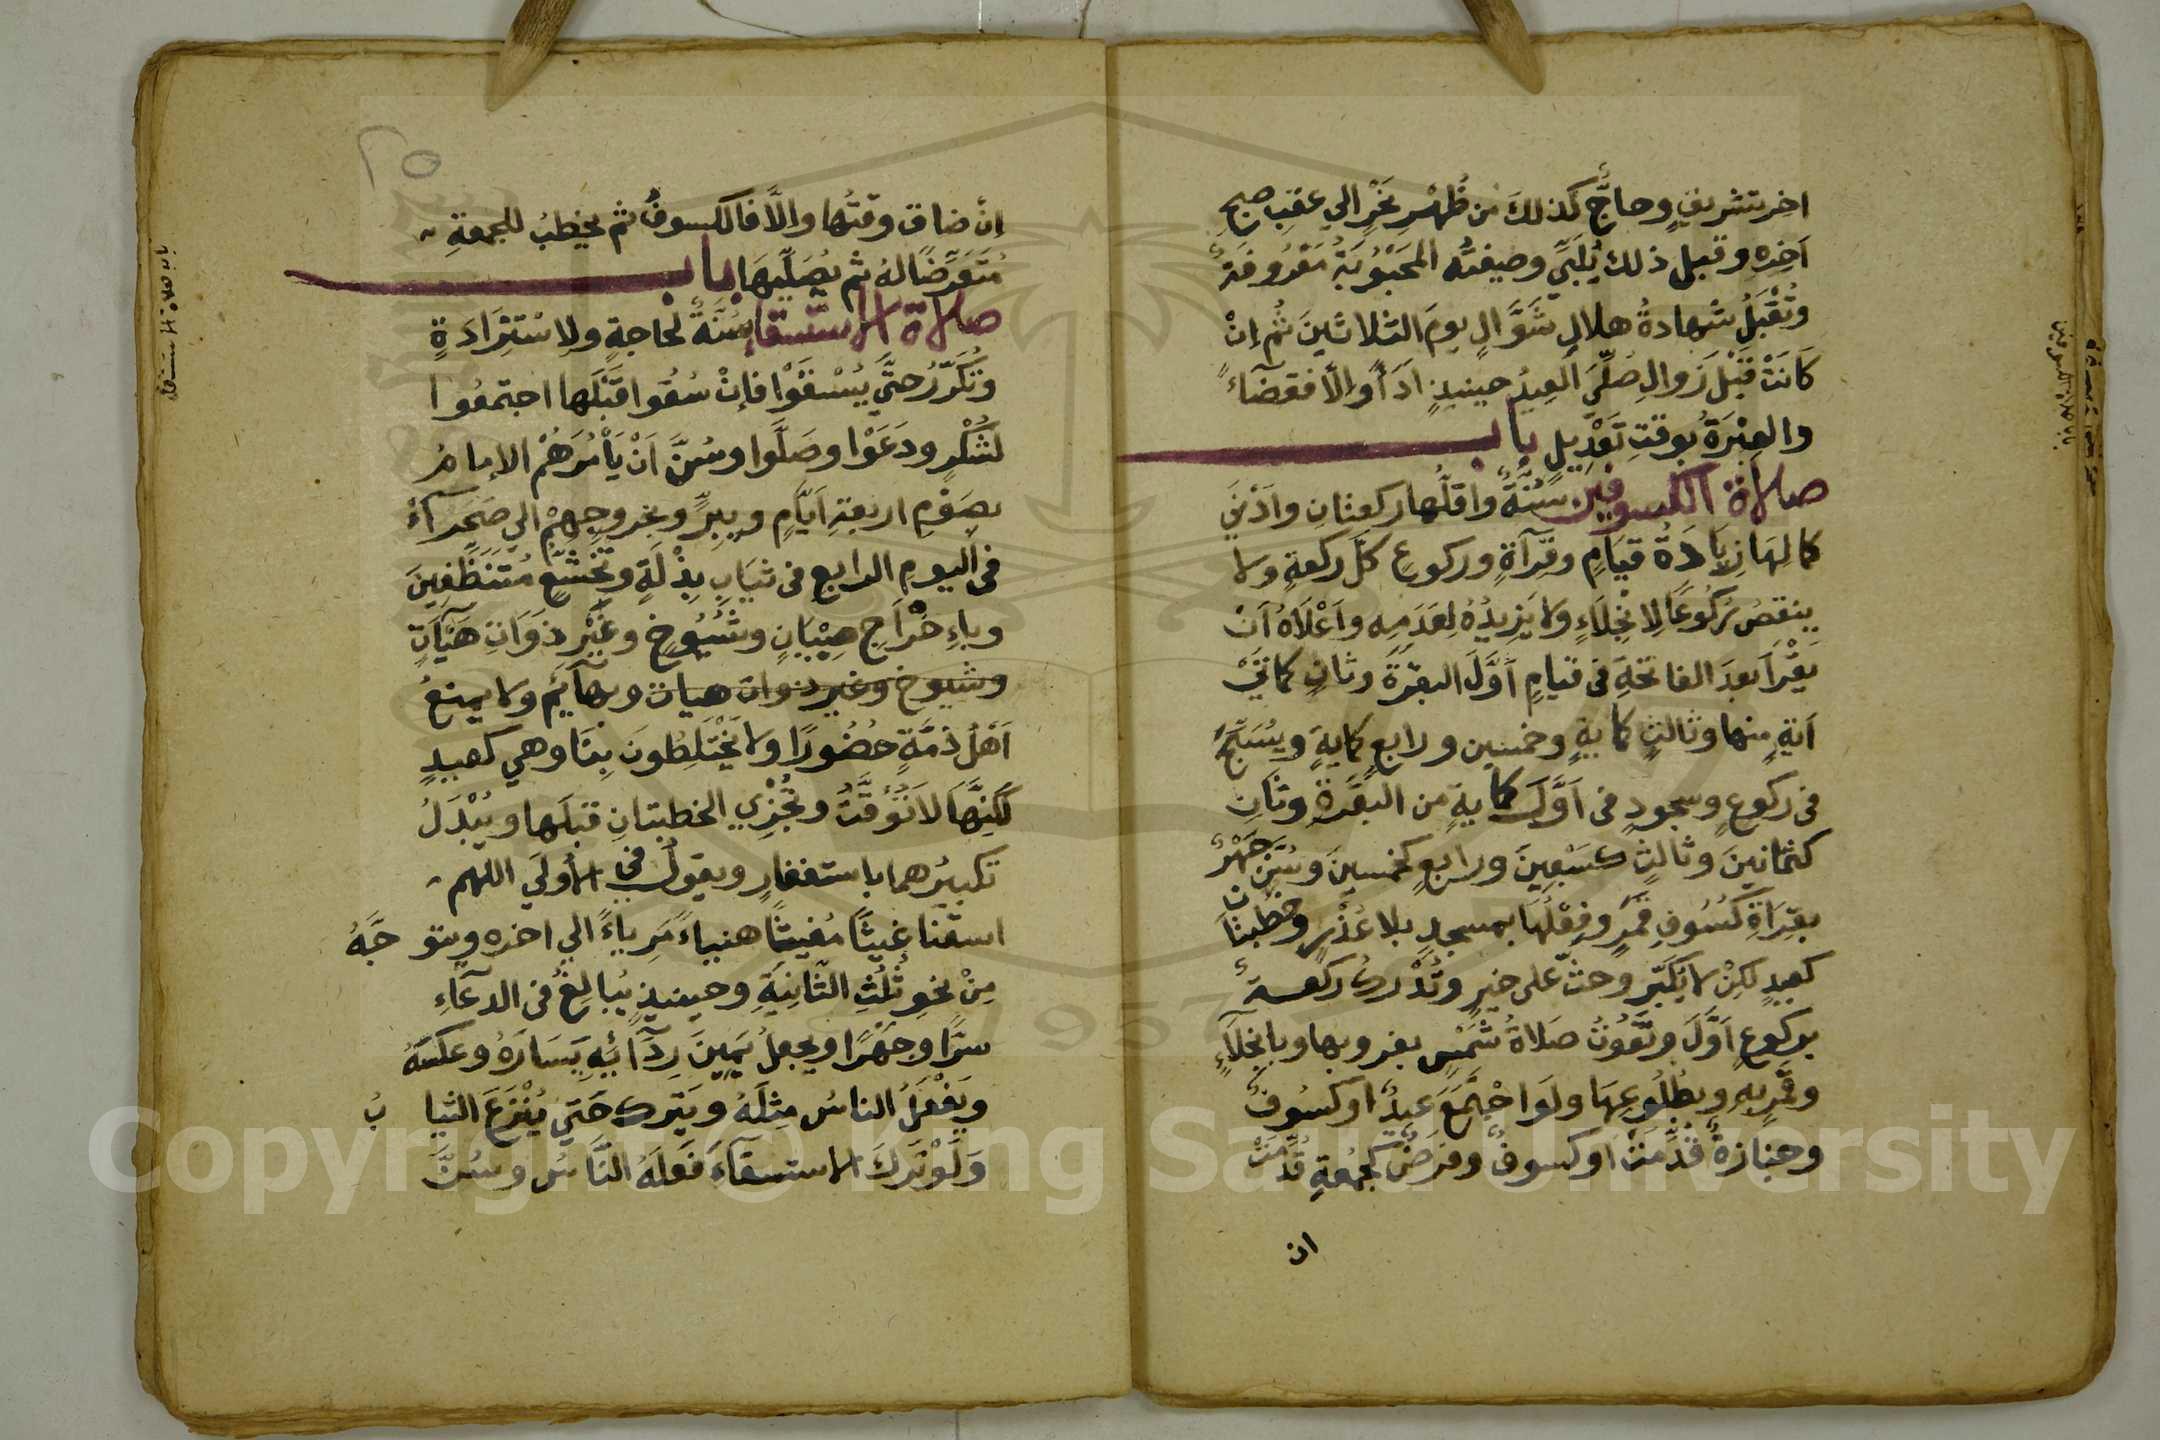 اخر تشريق وحاجٌّ كذلك من ظُهْرِ نَحْرٍ الي عقب صبح
آخِرِهِ وقبل ذلك يُلَبِّي وصيغتُه المَحْبُوبَةُ مَعْرُوفَةٌ
وتُقْبَلُ شهادةُ هلالِ شَوَّالٍ يومَ الثلاثينَ ثُم إنْ
كَانَتْ قَبْلَ زَوالٍ صُلِّيَ العيدُ حينيذٍ اَدَاً والاَّ فقضآءً
والعِبْرَةُ بوقتِ تَعْدِيلٍ باب
صلاة الكسوفين سُنَّةٌ واقلُّها ركعتانِ واَدْنَي
كمالِهَا زِيَادَةُ قيَامٍ وقِرآةٍ وركوعٍ كلَّ ركعةٍ ولا
ينقصُ رُكُوعًا لاِنْجِلَاءٍ ولا يَزِيدُهُ لِعَدَمِهِ واَعْلَاهُ اَنْ
يَقْرَاَ بعدَ الفاتحَةِ في قيامٍ اَوَّلَ البقرَةَ وثانٍ كماتَيْ
اَيةٍ منها وثالثٍ كمايةٍ وخمسين ورابعٍ كمايةٍ ويُسَبِّحُ
في ركوعٍ وسجودٍ في اَوَّلَ كمايةٍ من البقَرَةِ وثانٍ
كثمانينَ وثالثٍ كسَبْعِينَ ورابعٍ كخمسينَ وسُنَّ جَهْرٌ
بقِرَاةِ كُسُوفِ قَمَرٍ وفِعْلُهَا بمسجدٍ بلا عُذْرٍ وخطبتان
كعيدٍ لكِنْ لا يُكَبِّر وحثّ على خيرٍ وتُدْرك ركعةٌ
بركوعٍ اَوَّلَ وتَفُوتُ صَلاةُ شَمْسٍ بغروبها وبانجِلَآءٍ
وقَمَرٍ بِهِ وبطُلُوعِهَا ولَوِا جْتَمَعَ عيدٌ اوكسُوفٌ
وجنازةٌ قُدِّمَتْ اَوكسوفٌ وفرَضٌ كجمُعةٍ قُدِّمَتْ
ان
إنْ ضاق وقتُها والاَّ فالكسوفُ ثم يخطبُ للجمعةِ
مُتَعَرِّضًا لهُ ثم يُصَلِّيهَا باب
صلاة الاستسقا سُنَّةٌ لحاجةٍ ولاِسْتِزَادَةٍ
وتُكَرَّرُ حتَّي يُسْقَوْا فإنْ سُقُوا قَبْلَها اجتمعُوا
لشُكْرٍ ودَعَوْا وصَلَّوا وسُنَّ اَنْ يَأْمُرَهُمْ الإمامُ
بصَوْمِ اربعةِ اَيَّامٍ وبِبِرٍّ وبخروجِهِمْ الي صَحْرَآءَ
في اليومِ الرابعِ في ثيَابِ بِذْلَةٍ وتَخَشُّعٍ مُتَنَظِّفِينَ
وباِخْرَاجِ صِبْيَانٍ وشُيُوخٍ وغَيْرِ ذَوَاتِ هَيْآتٍ
وشيوخ وغير ذوات هيات وبهآيم ولا يمنعُ
اَهْلُ ذمَّةٍ حُضُورًا ولا يَخْتَلِطُونَ بِنَا وهي كعيدٍ
لَكِنَّهَا لَا تُوَقَّتُ وتُجْزِي الخطبتانِ قبلَها ويُبْدَلُ
تكبيرُهما باستغفارٍ ويقولُ في الاُولَي اللهم
اسقنا غيثًا مُغيثًا هنياءً مَرِياءً الي اخره ويتو جَّهُ
مِنْ نحوِ ثُلُثِ الثَّانِيَةِ وحينيذٍ يُبالِغُ في الدعآءِ
سرًّا وجَهْرًا ويجعلُ يَمِينَ رِدَآئِهِ يَسَارَهُ وعكسَهُ
ويَفْعَلُ الناسُ مِثلَهُ ويَتْرك حَتَي يُنْزَعَ الثيا بُ
وَلَوْ تَرَكَ الاستسقآءَ فَعَلَهُ النَّاسُ وسُنَّ
Copyright © King Saud University
1957